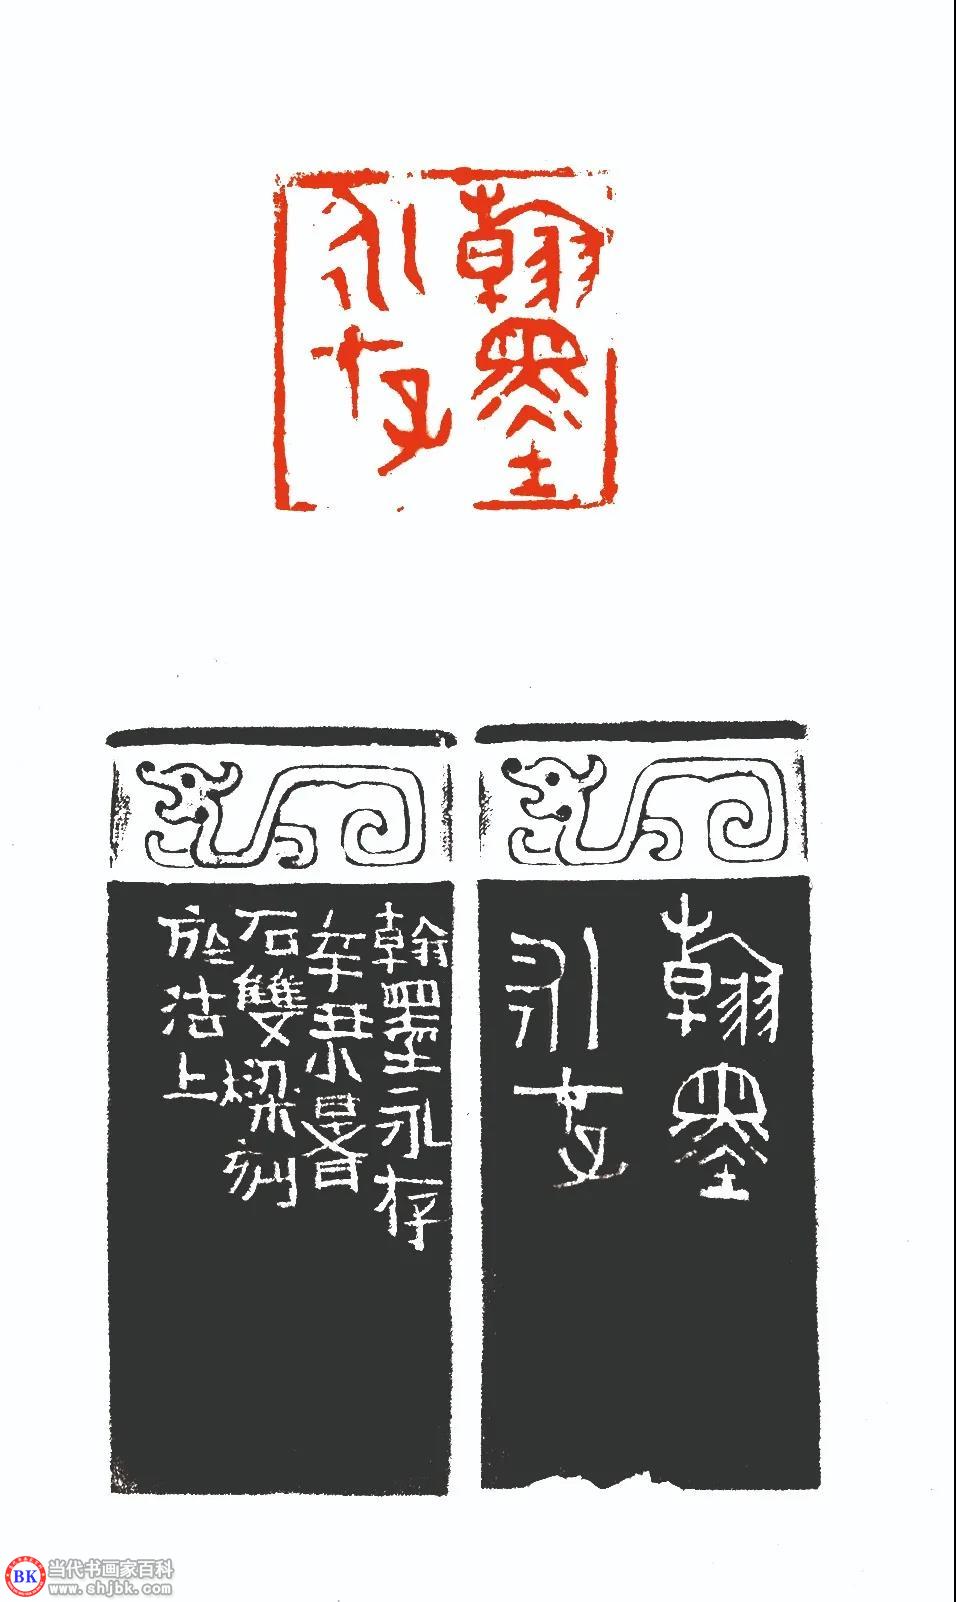 翰墨
永存
翰墨
永存
翰墨永存
辛丑小暑
石雙樑刻
於沽上
BK
当代书画家百科
www.shjbk.com